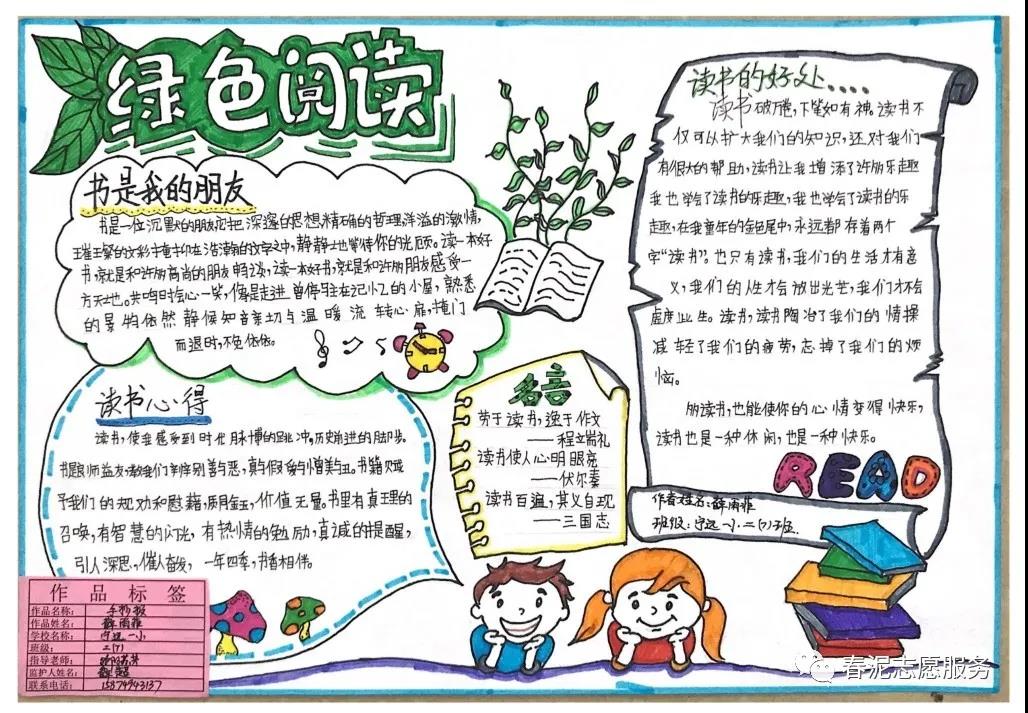 绿色阅读
书是我的朋友
书是一位沉默的朋友,它把深邃的思想,精确的哲理,洋溢的激情,
璀璨的文彩于掩卷,伫立浩瀚的文学之中,静静地等待你的光顾。读一本好
书,就是和许多高尚的朋友畅谈,读一本好书,就是和许多朋友感受一
方天地。共鸣时会心一笑,像是走进曾停驻在记忆的小屋,熟悉
的景物依然静候知音亲切与温暖流转心扉,掩门
而退时,不免依依。
读书心得
读书,使我感受到时代脉搏的跳冲,历史前进的脚步。
予我们的规劝和慰藉,质同金玉,价值无量。书里有真理的
召唤,有智慧的闪光,有热情的勉励,真诚的提醒,
引人深思,催人奋发,一年四季,书香相伴。
名言
劳于读书,逸于作文
——程端礼
读书使人心明眼亮
——伏尔泰
读书百遍,其义自现
——三国志
读书的好处....
读书破万卷,下笔如有神,读书不
仅可以扩大我们的知识,还对我们
有很大的帮助,读书让我增添了许多乐趣
我也学会了读书的乐趣,我也学会了读书的乐
趣,在我童年的金色尾中,永远都存着两个
字“读书”。也只有读书,我们的生活才有意
义,我们的人性才会放出光芒,我们才不会
虚度此生。读书,读书陶冶了我们的情操
减轻了我们的疲劳,忘掉了我们的烦
恼。
多读书,也能使你的心情变得快乐,
读书也是一种休闲,也是一种快乐。
READ
作者姓名:薛雨菲
班级:宁远一小二(7)班
作品标签
作品名称: 手抄报
作品姓名: 薛雨菲
学校名称: 宁远一小
班级: 二(7)
指导老师:
监护人姓名:
联系电话: 15874943137
春泥志愿服务